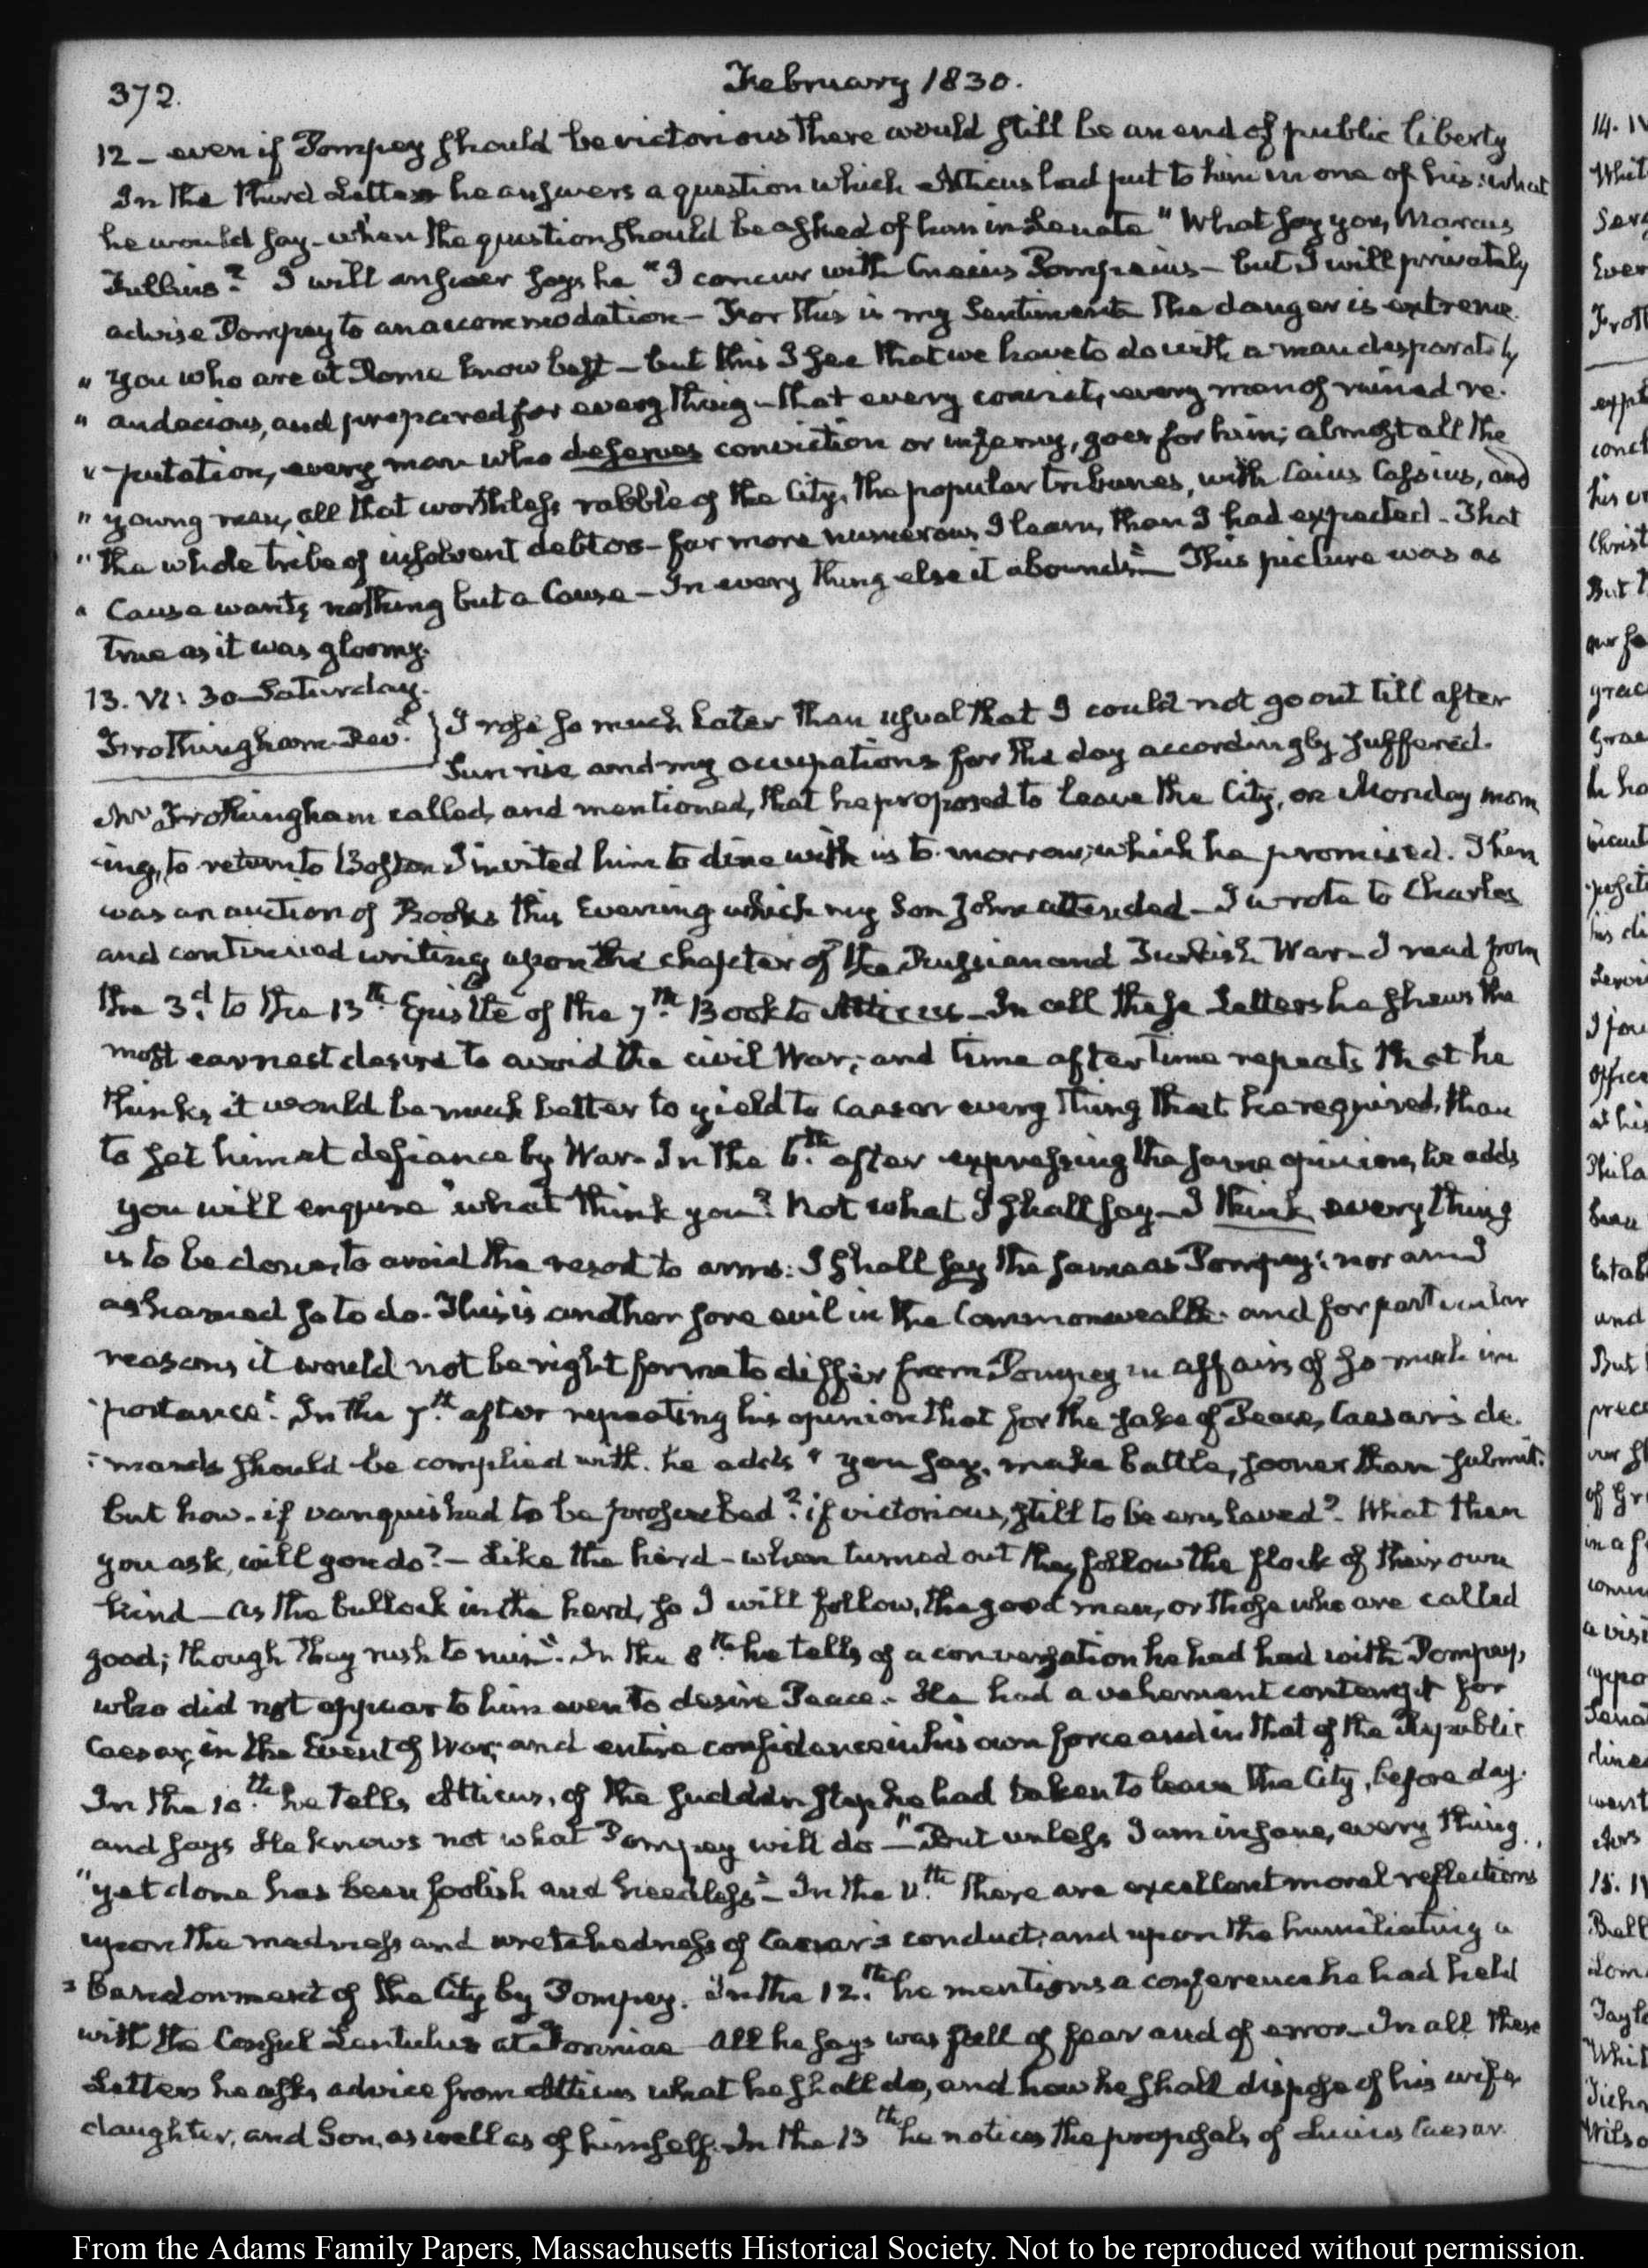 372.
February 1830.
12 – even if Pompey should be victorious there would still be an end of public liberty
In the third Letter he answers a question which Atticus had put to him in one of his: what
he would say – when the question should be asked of him in Senate "What say you, Marcus
Tullius? I will answer says he "I concur with Cnaeus Pompeius – but I will privately
advise Pompey to an accommodation – For this is my Sentiment. The danger is extreme.
" you who are at Rome know best – but this I see that we have to do with a man desparately
" audacious, and prepared for every thing – that every convict, every man of ruined re-
" putation, every man who deserves conviction or infamy, goes for him; almost all the
" young men, all that worthless rabble of the City, the popular tribunes, with Caius Cassius, and
" the whole tribe of insolvent debtors – far more numerous I learn, than I had expected – That
" Cause wants nothing but a Cause – In every thing else it abounds" – This picture was as
true as it was gloomy.
13. VI: 30 Saturday.
Frothingham Revd. } I rose so much later than usual that I could not go out till after
Sun rise and my occupations for the day accordingly suffered.
Mr Frothingham called, and mentioned, that he proposed to leave the City, on Monday morn
-ing, to return to Boston I invited him to dine with us to-morrow; which he promised. There
was an auction of Books this Evening which my Son John attended – I wrote to Charles
and continued writing upon the chapter of the Russian and Turkish War – I read from
the 3d. to the 13th. Epistle of the 7th. Book to Atticus – In all these Letters he shews the
most earnest desire to avoid the civil War; and time after time repeats that he
thinks it would be much better to yield to Caesar every thing that he required, than
to set him at defiance by War – In the 6th. after expressing the same opinion, he adds
you will enquire "what think you? Not what I shall say – I think every thing
is to be done, to avoid the resort to arms: I shall say the same as Pompey: nor am I
ashamed so to do. This is another sore evil in the Commonwealth. and for particular
reasons it would not be right for me to differ from Pompey in affairs of so much im
-portance". In the 7th. after repeating his opinion that for the sake of Peace, Caesar's de-
-mands should be complied with. he adds "you say, make battle, sooner than submit.
but how – if vanquished to be proscribed? if victorious, still to be enslaved? What then
you ask, will you do? – Like the herd – when turned out they follow the flock of their own
kind – As the bullock in the herd, so I will follow, the good men, or those who are called
good; though they rush to ruin". In the 8th. he tells of a conversation he had had with Pompey,
who did not appear to him even to desire Peace. He had a vehement contempt for
Caesar, in the Event of War; and entire confidence in his own force and in that of the Republic
In the 10th. he tells Atticus, of the sudden step he had taken to leave the City, before day.
and says He knows not what Pompey will do – "But unless I am insane, every thing
"yet done has been foolish and heedless" – In the 11th. there are excellent moral reflections
upon the madness and wretchedness of Caesar's conduct; and upon the humiliating a
-bandonment of the City by Pompey. In the 12th. he mentions a conference he had held
with the Consul Lentulus at Formiae – All he says was full of fear and of error – In all these
Letters he asks advice from Atticus what he shall do, and how he shall dispose of his wife
daughter, and Son, as well as of himself. In the 13th he notices the proposals of Lucius Caesar
From the Adams Family Papers, Massachusetts Historical Society. Not to be reproduced without permission.